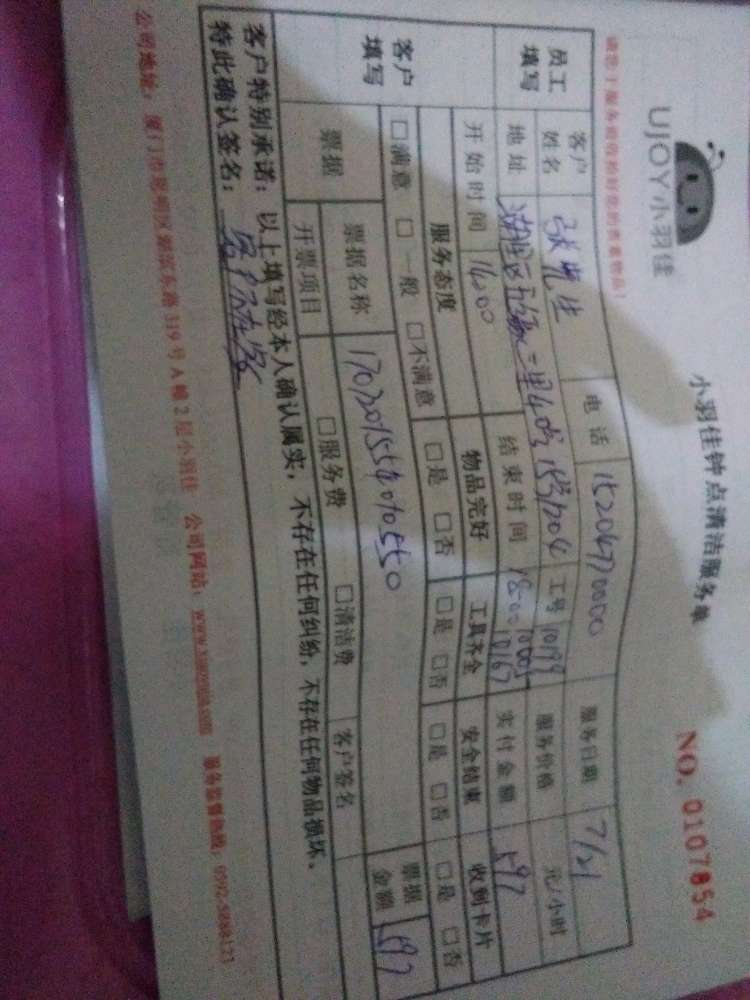 UJOY小羽佳
小羽佳钟点清洁服务单
NO. 0107854
员工填写
客户姓名 张先生 电话 15204770000 服务日期 7/21
地址 湖里区 二里40号 1204 工号 10199 10005 10167 服务价格 元/小时
开始时间 14:00 结束时间 18:00 实付金额 597
客户填写
服务态度 物品完好 工具齐全 安全结束 收到卡片
□满意 □一般 □不满意 □是 □否 □是 □否 □是 □否 □是 □否
票据 票据名称 票据金额 597
开票项目 □服务费 □清洁费 客户签名
客户特别承诺：以上填写经本人确认属实，不存在任何纠纷，不存在任何物品损坏，
特此确认签名：客户不在家
公司地址：厦门市思明区 东路319号A幢2层小羽佳 公司网站： 服务监督热线：0592-5888121